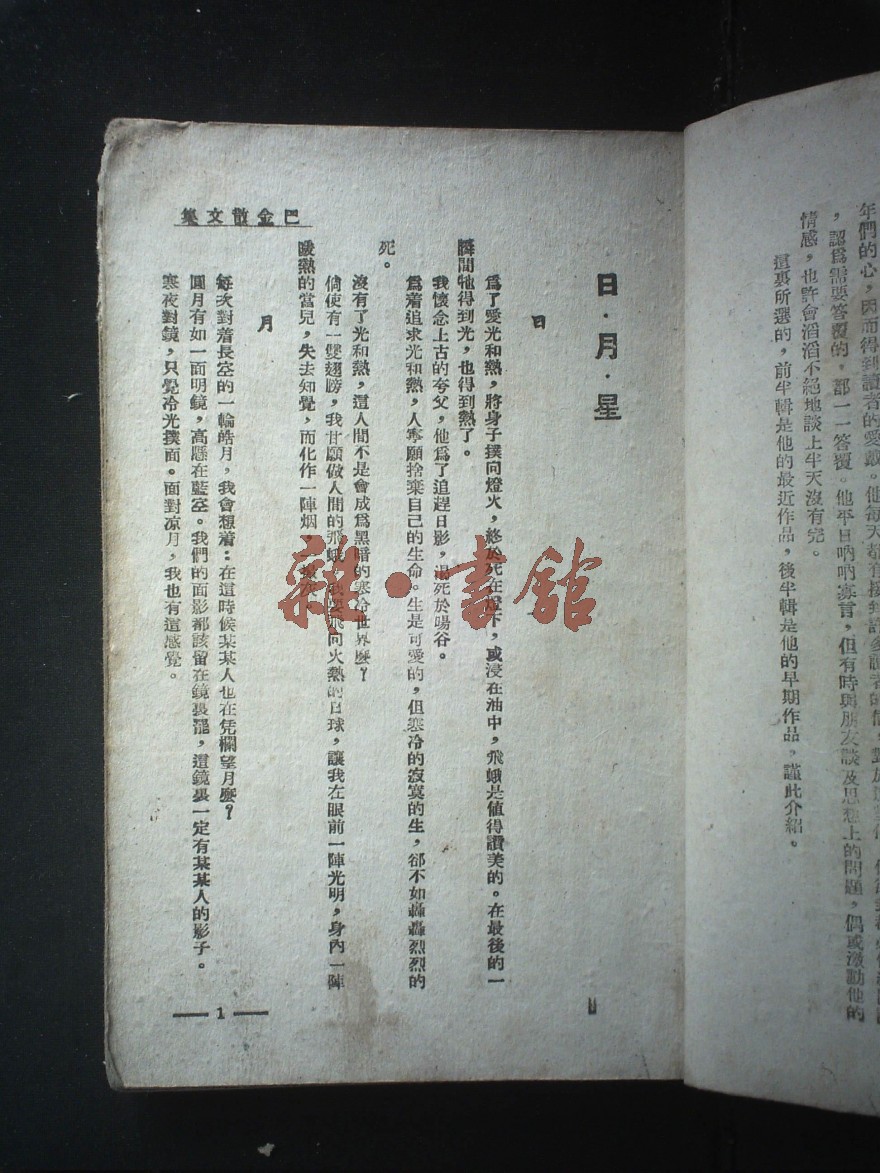 年們的心,因而得到讀者的愛戴。他每天都有接到許多讀者的信,對於
,認爲需要答覆的,都一一答覆。他平日吶吶寡言,但有時與朋友談及思想上的問題,偶或激動他的
情感,也許會滔滔不絕地談上半天沒有完。
這裏所選的,前半輯是他的最近作品,後半輯是他的早期作品,謹此介紹。
巴金散文集
日·月·星
日
爲了愛光和熱,將身子撲向燈火,終於死在燈下,或浸在油中,飛蛾是值得讚美的。在最後的一
瞬間牠得到光,也得到熱了。
我懷念上古的夸父,他爲了追趕日影,渴死於暘谷。
爲着追求光和熱,人寧願捨棄自己的生命。生是可愛的,但寒冷的寂寞的生,卻不如轟轟烈烈的
死。
沒有了光和熱,這人間不是會成爲黑暗的寒冷世界麼?
倘使有一雙翅膀,我甘願做人間的飛蛾。我要飛向火熱的日球,讓我在眼前一陣光明,身內一陣
暖熱的當兒,失去知覺,而化作一陣烟
月
每次對着長空的一輪皓月,我會想着:在這時候某某人也在凭欄望月麼?
圓月有如一面明鏡,高懸在藍空。我們的面影都該留在鏡裏罷,這鏡裏一定有某某人的影子。
寒夜對鏡,只覺冷光撲面。面對凉月,我也有這感覺。
1
雜·書館